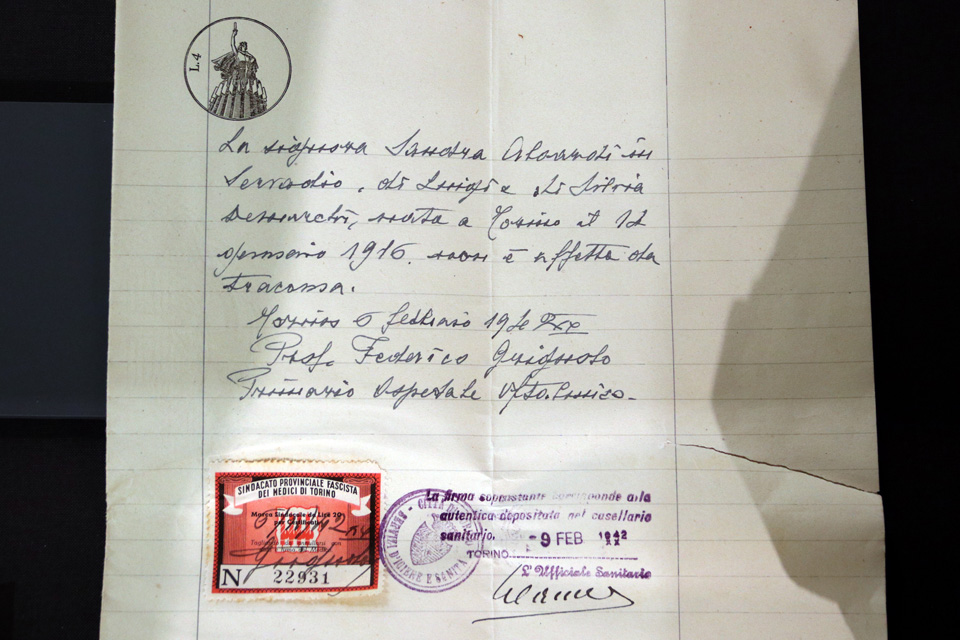 L. 4
La signora Sandra in
Servadio, di Luigi e di Silvia
nata a Torino il 12
gennaio 1916. non è affetta da
tracoma.
Torino 6 febbraio XX
Prof. Federico
Primario Ospedale Oftalmico.
SINDACATO PROVINCIALE FASCISTA
DEI MEDICI DI TORINO
Marca Sindacale da Lire 20
per Certificati
N 22931
CITTÀ DI
SERVIZI D'IGIENE E SANITÀ
La firma soprastante corrisponde alla
autentica depositata nel casellario
sanitario.
-9 FEB 1942
XX
TORINO
L'Ufficiale Sanitario